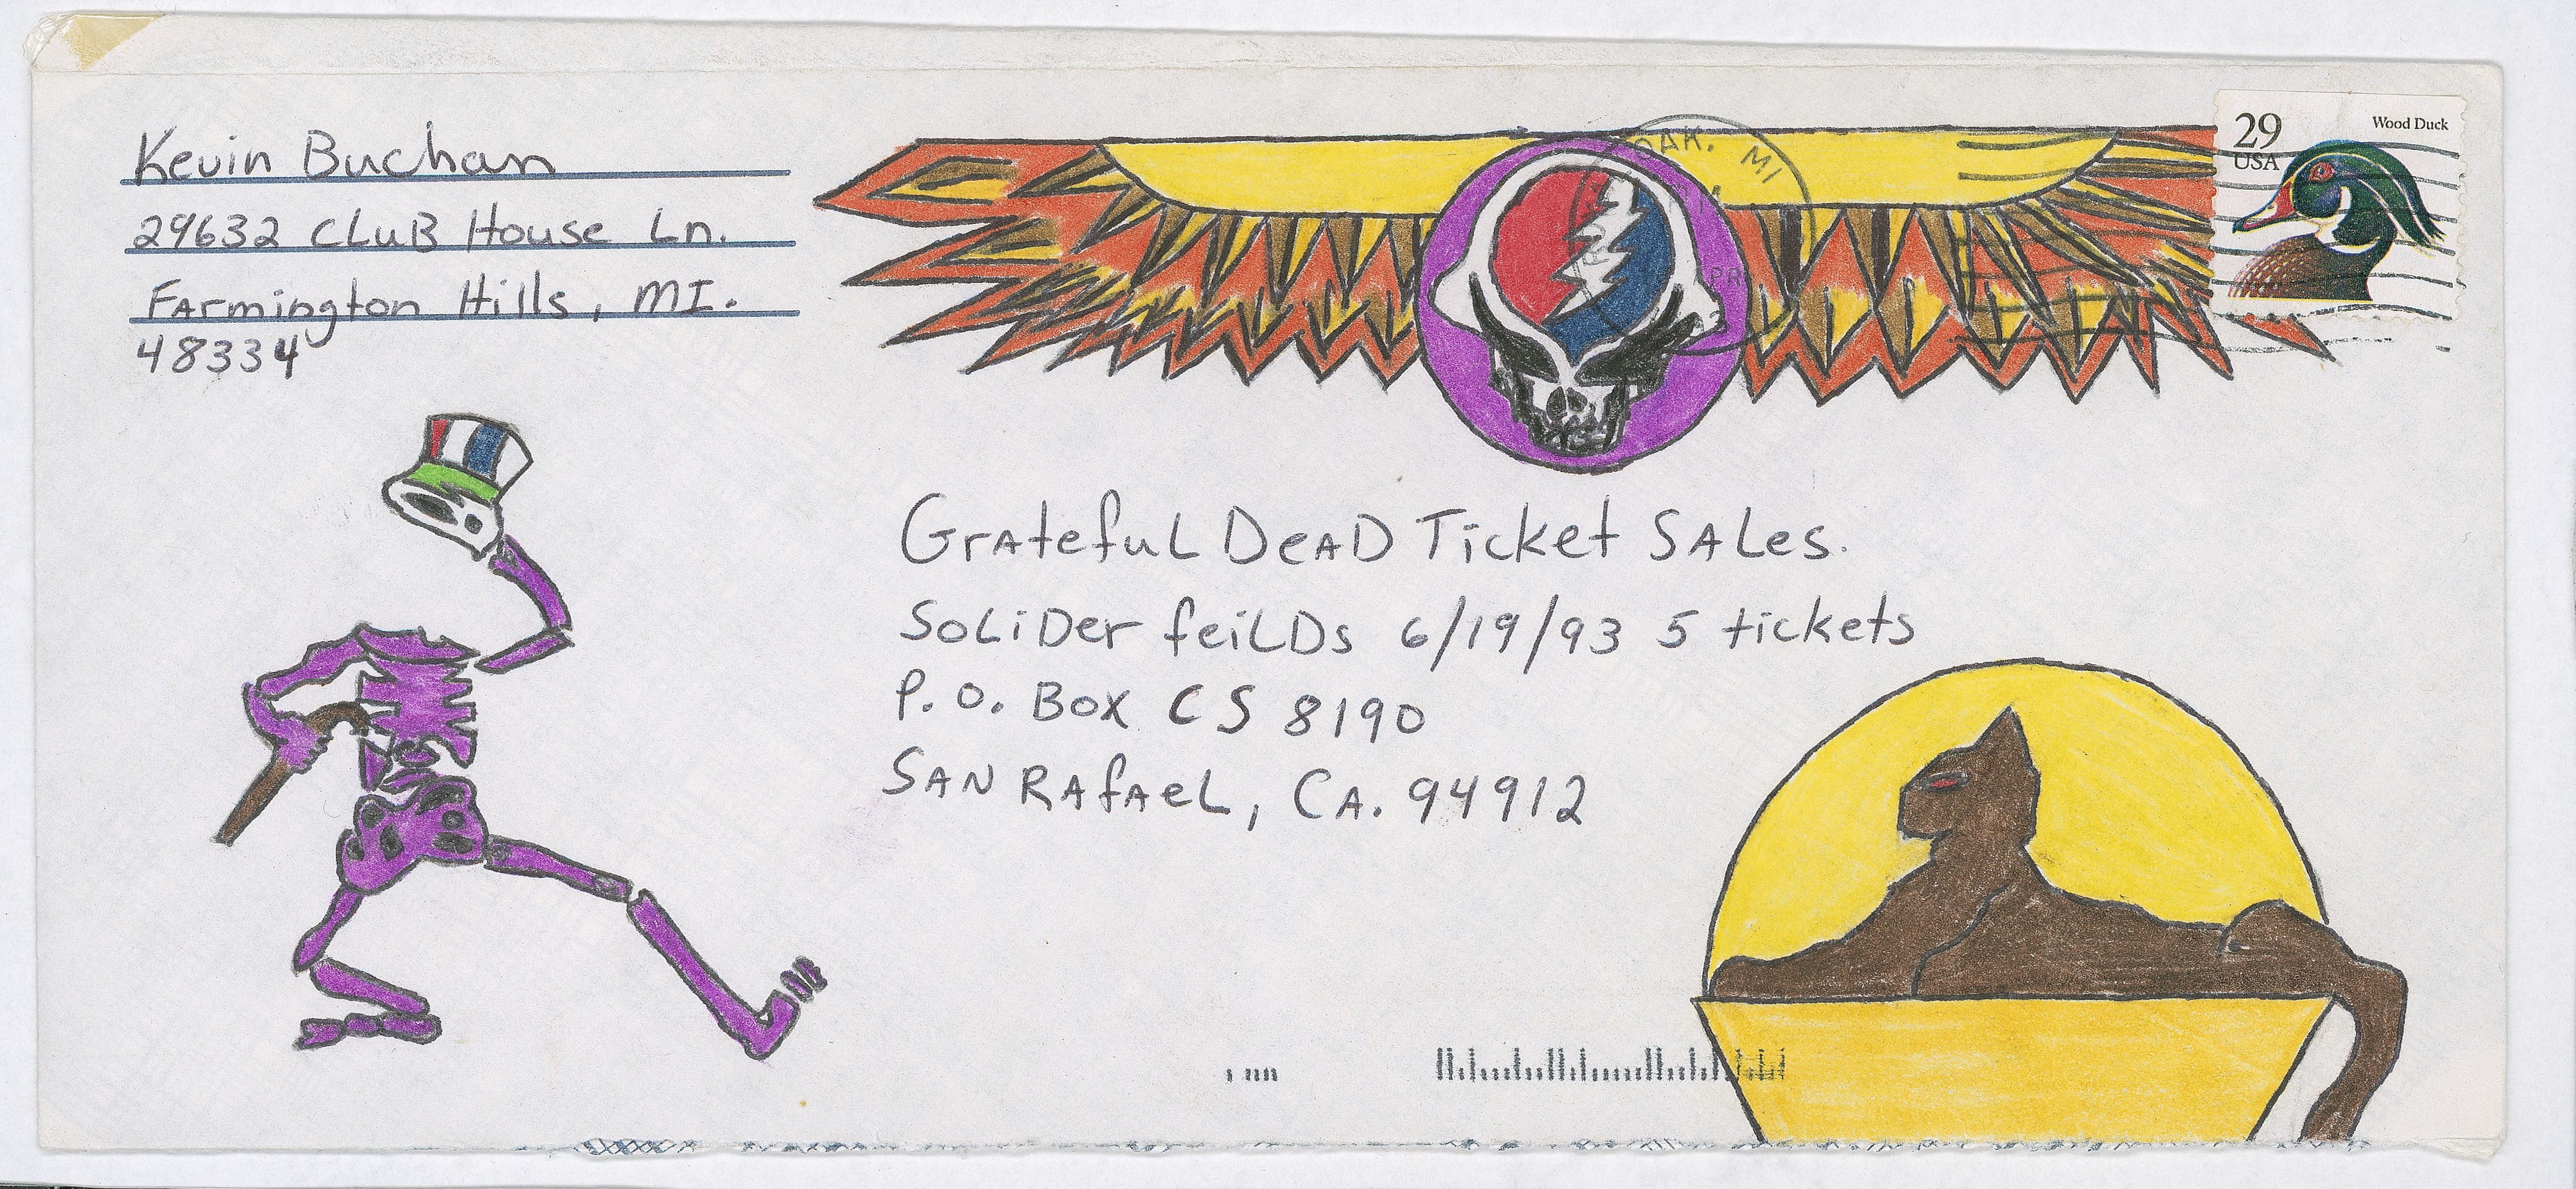 Kevin Buchan
29632 CLuB House Ln.
FArmington Hills, MI.
48334
29
USA
Wood Duck
OAK. MI
PM
GrAtefuL DeAD Ticket SALes.
SoLiDer feiLDs 6/19/93 5 tickets
P.O. Box CS 8190
SAN RAfAeL, CA. 94912